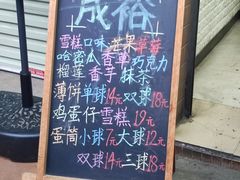 成裕
雪糕口味 芒果 草莓
哈密瓜 香草 巧克力
榴莲 香芋 抹茶
薄饼单球14元 双球18元
鸡蛋仔雪糕19元
蛋筒小球7元大球12元
双球14元 三球18元